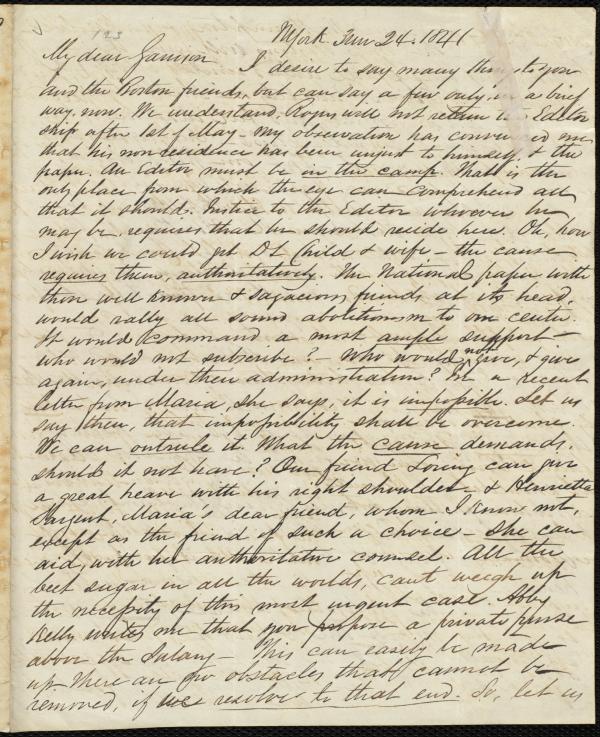 123
NYork Jan 24. 1841
My dear Garrison
I desire to say many things to you
and the Boston friends, but can say a few only, in a brief
way, now. We understand, Rogers will not retain the Editor
ship after 1st of May - my observation has convinced me
that his nonresidence has been unjust to himself, & the
paper. An Editor must be in the camp. That is the
only place from which the eye can comprehend all
that it should. Justice to the Editor whoever he
may be, requires that he should reside here. Oh, how
I wish we could get D L Child & wife - the cause
requires them, authoritatively. The National paper with
these well known & sagacious friends at its head,
would rally all sound abolitionism to one center.
It would command a most ample support -
who would not subscribe? - Who would not give, & give
again, under their administration? In a recent
letter from Maria, she says, it is impossible. Let us
say then, that impossibility shall be overcome.
We can outrule it. What the cause demands,
should it not have? Our friend Loring can give
a great heave with his right shoulder & Henrietta
Sargent, Maria's dear friend, whom I know not,
except as the friend of such a choice - she can
aid, with her authoritative counsel. All the
beet sugar in all the worlds, can't weigh up
the necessity of this most urgent case. Abby
Kelly writes me that you propose a private purse
above the Salary - This can easily be made
up. There are no obstacles that cannot be
removed, if we resolve to that end. So, let us